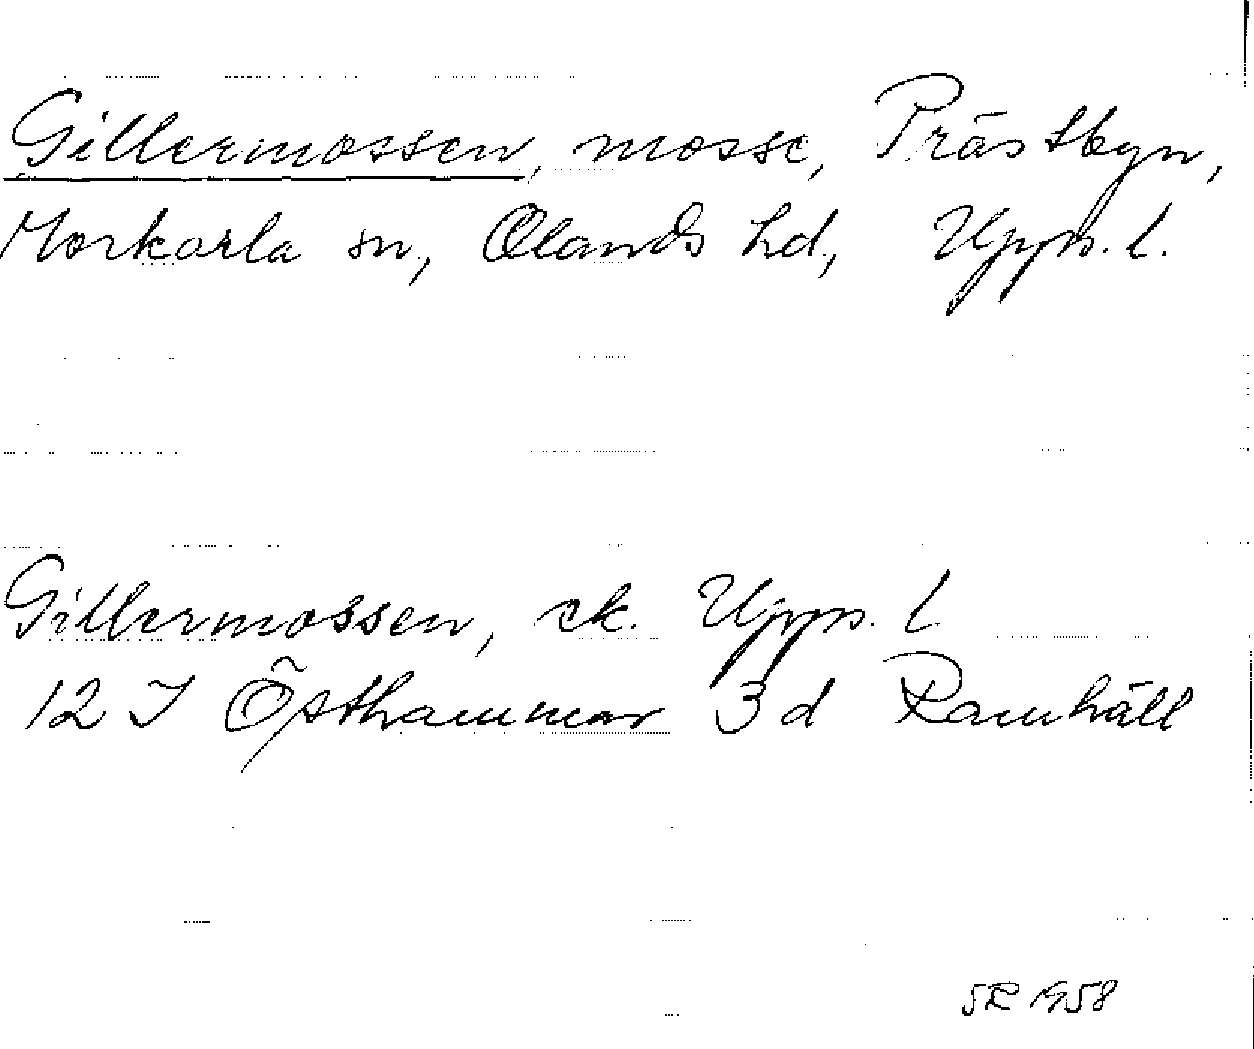 Gillermossen, mosse, Prästbyn,
Morkarla sn, Olands hd, Upps. l.
Gillermossen, ek. Upps. l
12 I Östhammar 3 d Ramhäll
SR 1958